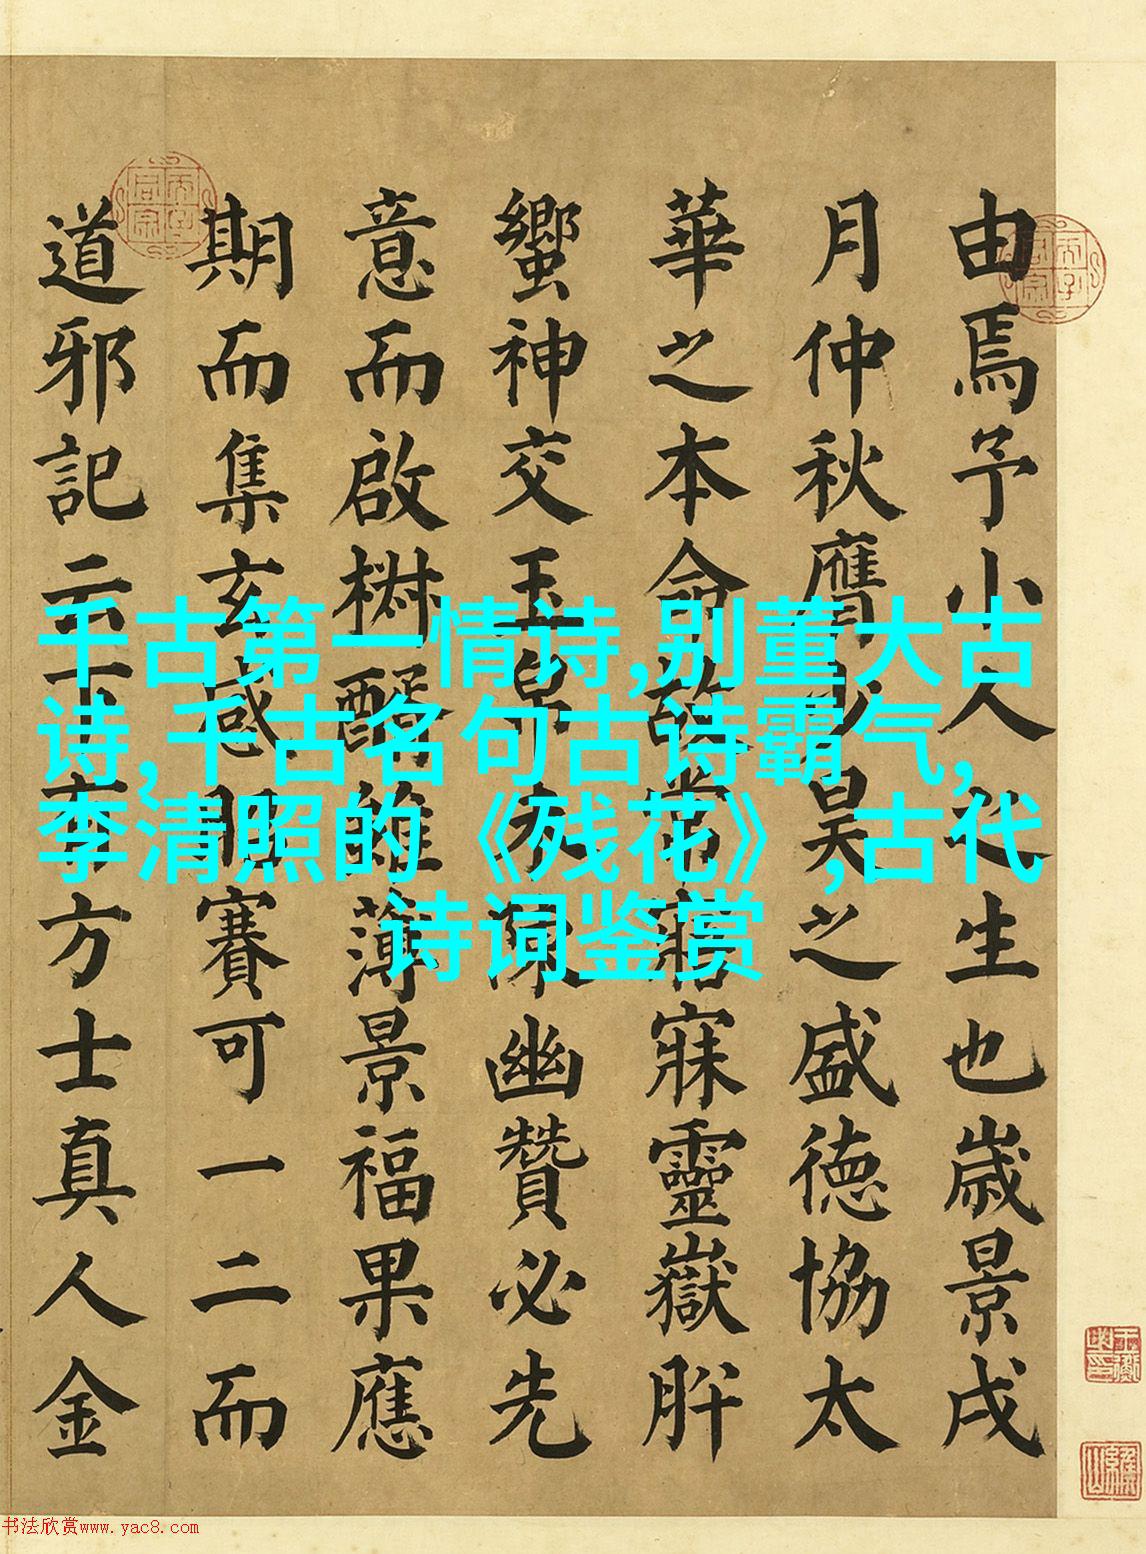 千古第一情诗,别董大古
诗,千古名句古诗霸气,
李清照的《残花》,古代
诗词鉴赏
由焉予小人之生也歲景戌
月仲秋膺少昊之盛德協太
華之本命故常寤寐靈嶽肸
蠁神交玉帛未陳幽贊必先
意而啟椒醑雖薄景福果應
期而集玄感昭賽可一二而
道邪記云方士真人金
书法欣赏www.yac8.com